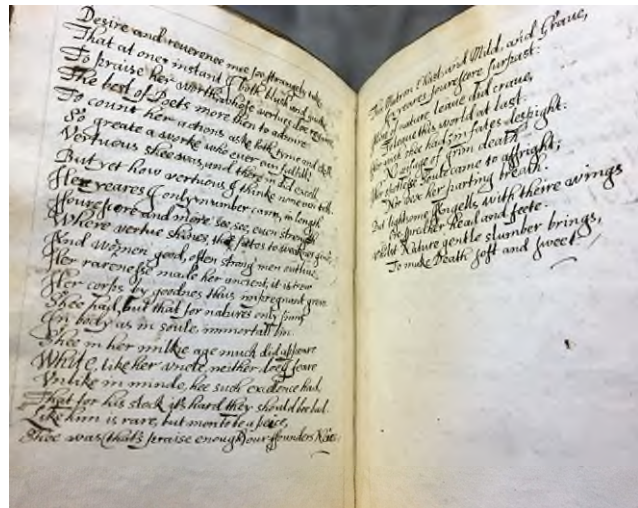 Desire and reuerence mee soe strangely take,
That at one instant I both blush and quake
To praise her worth, whose vertues doe require
The best of Poets more then to admire
To count her actions aske both tyme and skill
So greate a worke who euer can fulfill
Vertuous shee was, and there in did excell
But yet how vertuous I thinke none can tell.
Her yeares I only number cann, in length
Fourescore and more: see, see, euen strength
Where vertue shines, the fates to weaknes giue
And women good, often strong men outliue.
Her rarenesse made her ancient, it is trew
Her corps by goodnes thus impregnant grew
Shee had, but that for natures only sinn
In body as in soule, immortall bin.
Shee in her milkie age much did appeare
White, like her vncle, neither doe I feare
Vnlike in minde, hee such exelence had,
That for his stock its hard they should bee bad.
Like him is rare, but
Shee was (that's praise enough) our ffounders Neece.
This Matron Chast, and Mild, and Graue,
yeares fourescore surpast:
of nature leaue did craue,
To leaue this world at last.
shee had, in fates despight:
No visage of grim death
came to affright;
Nor box her parting breath.
But lightsome Angells with theire wings
head and feete.
Whilst Nature gentle slumber brings,
To make Death soft and sweet.